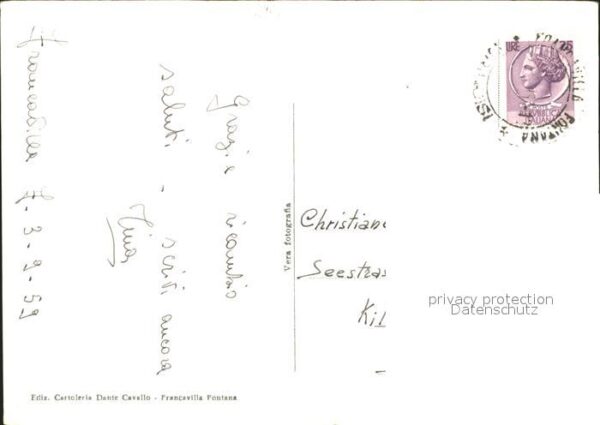 Francavilla F. 3-9-59
Grazie ricambio
saluti, scriti ancora
Tina
Vera fotografia
LIRE 25
FRANCAVILLA FONTANA
Christiane
Seestras
Ki
privacy protection
Datenschutz
Ediz. Cartoleria Dante Cavallo - Francavilla Fontana